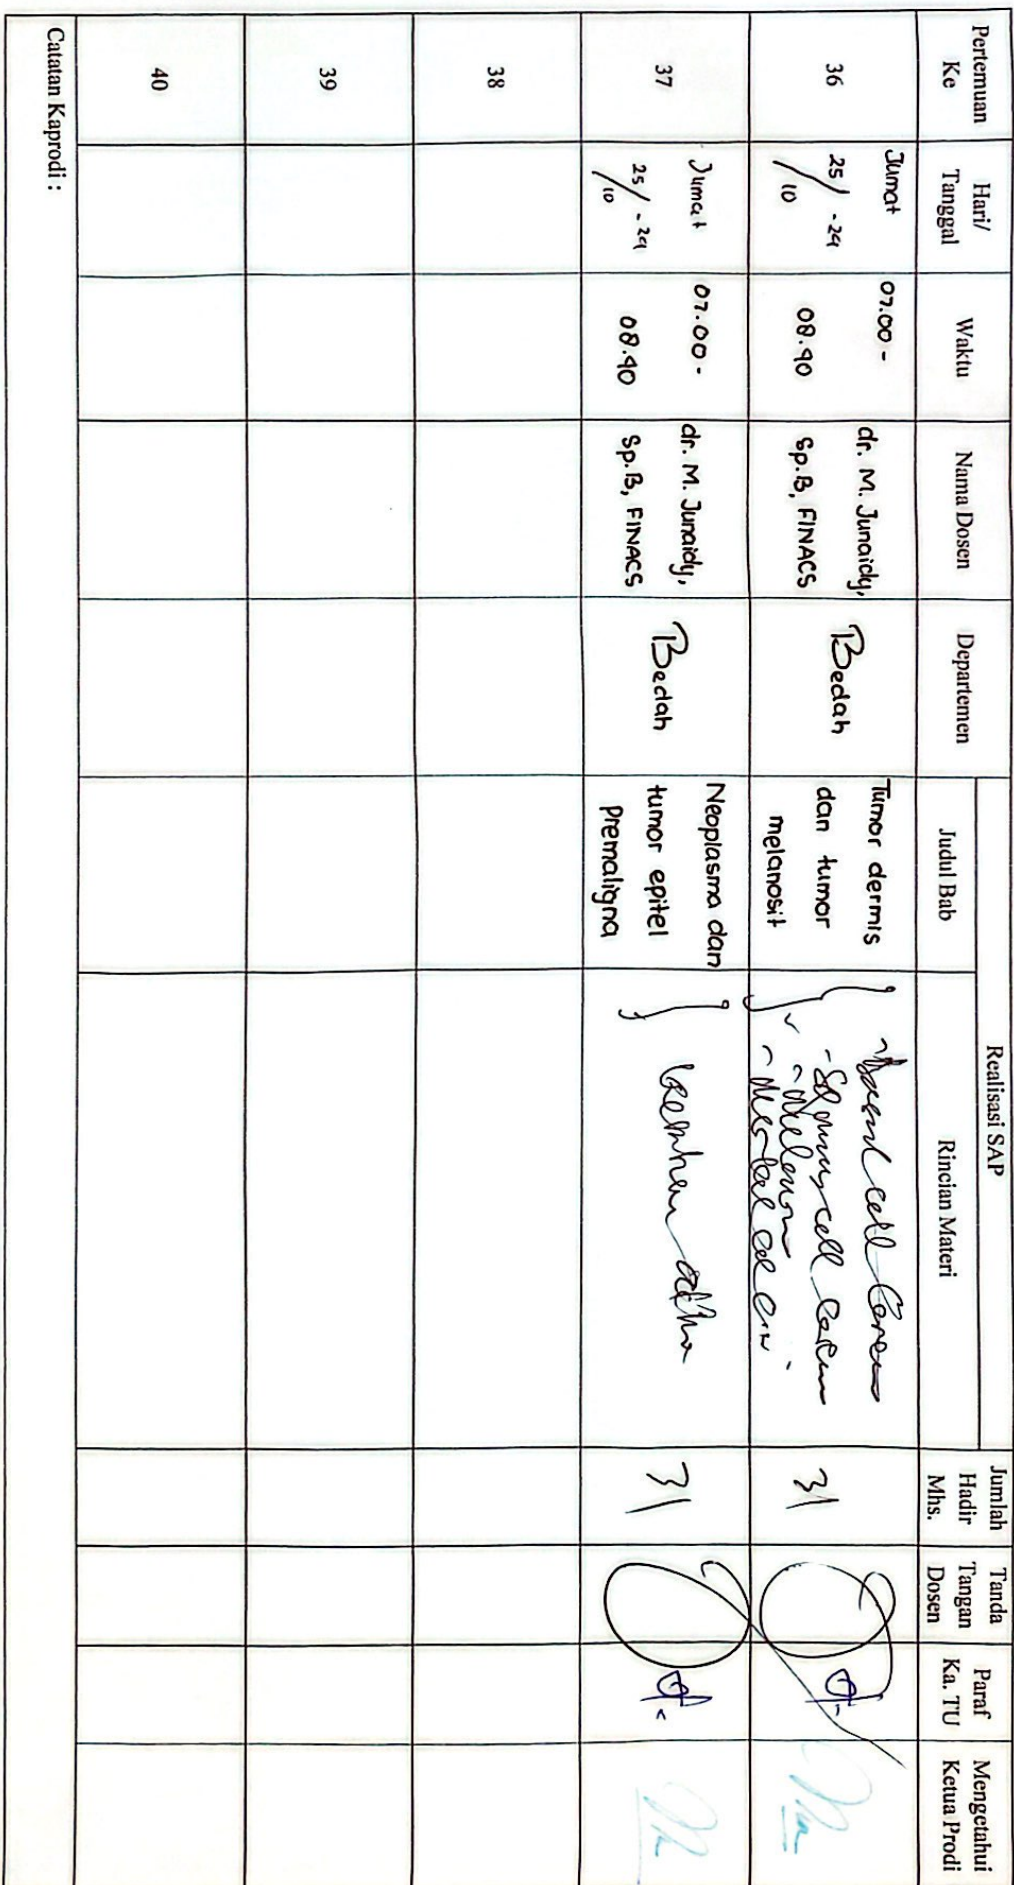 Pertemuan Ke
Hari/ Tanggal
Waktu
Nama Dosen
Departemen
Realisasi SAP
Judul Bab
Rincian Materi
Jumlah Hadir Mhs.
Tanda Tangan Dosen
Paraf Ka. TU
Mengetahui Ketua Prodi
36
Jumat
25/10 -24
07.00 -
08.40
dr. M. Junaidy,
Sp.B, FINACS
Bedah
Tumor dermis
dan tumor
melanosit
cell
cell
31
37
Jumat
25/10 -24
07.00 -
08.40
dr. M. Junaidy,
Sp.B, FINACS
Bedah
Neoplasma dan
tumor epitel
Premaligna
31
38
39
40
Catatan Kaprodi :